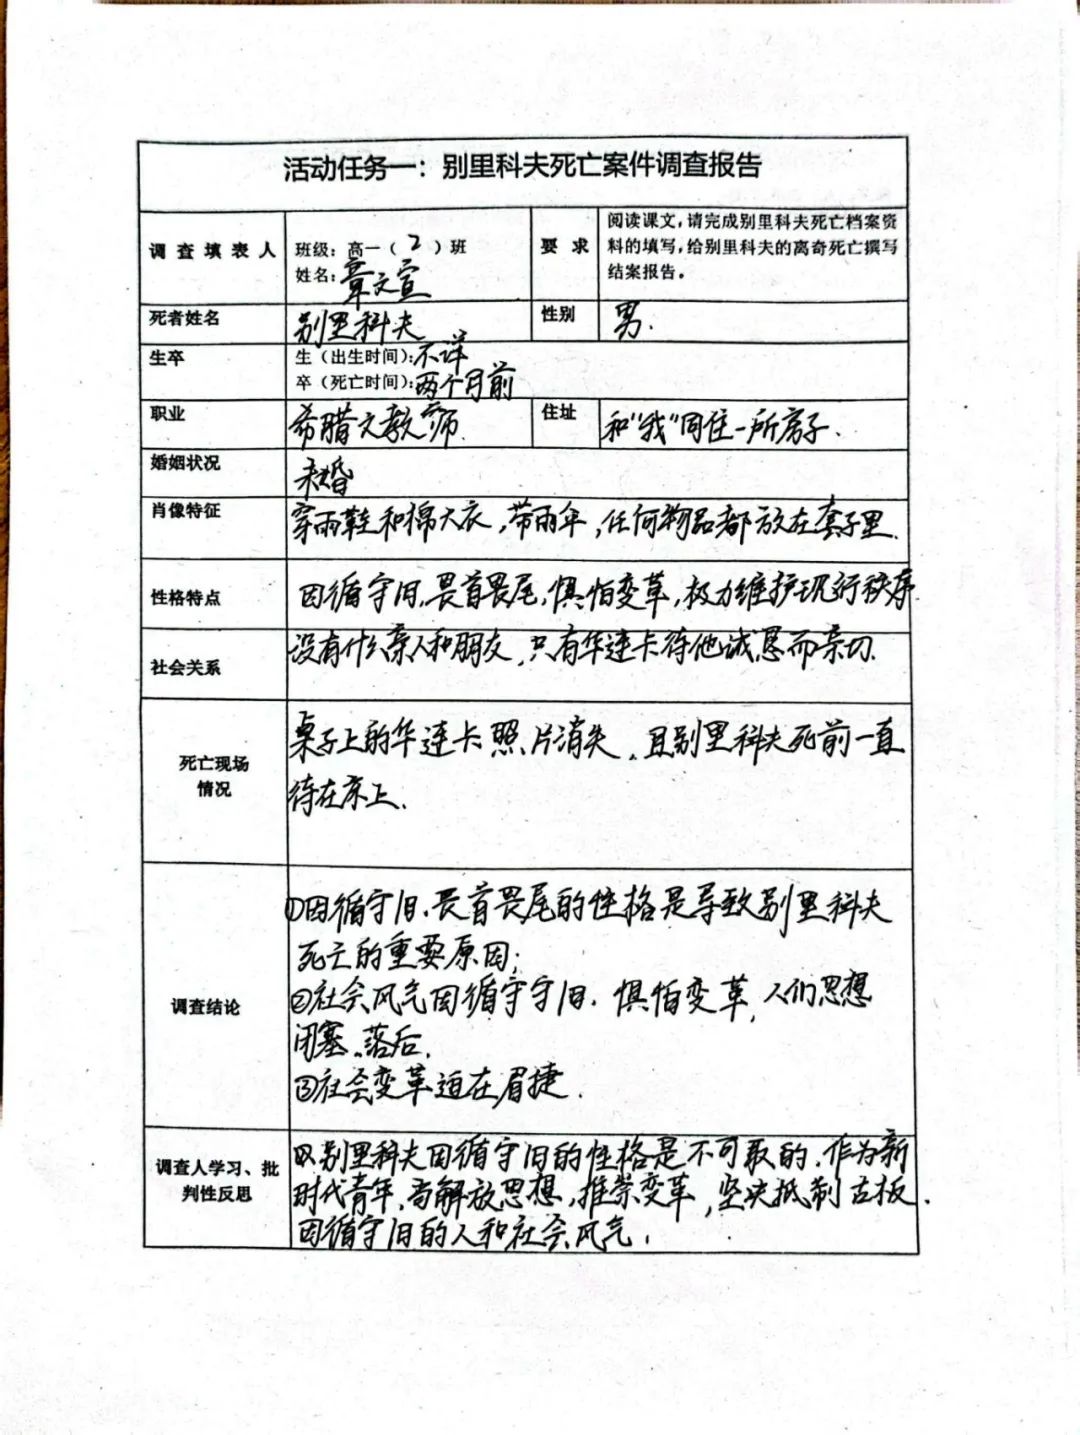 活动任务一：别里科夫死亡案件调查报告
调查填表人
班级：高一（2）班
姓名：章文宣
要求
阅读课文，请完成别里科夫死亡档案资
料的填写，给别里科夫的离奇死亡撰写
结案报告。
死者姓名
别里科夫
性别
男.
生卒
生（出生时间）：不详
卒（死亡时间）：两个月前
职业
希腊文教师.
住址
和“我”同住一所房子.
婚姻状况
未婚
肖像特征
穿雨鞋和棉大衣，带雨伞，任何物品都放在套子里.
性格特点
因循守旧，畏首畏尾，惧怕变革，极力维护现行秩序.
社会关系
没有什么亲人和朋友，只有华连卡待他诚恳而亲切.
死亡现场
情况
桌子上的华连卡照片消失，且别里科夫死前一直
待在床上.
调查结论
①因循守旧、畏首畏尾的性格是导致别里科夫
死亡的重要原因；
②社会风气因循守守旧.惧怕变革，人们思想
闭塞、落后.
③社会变革迫在眉捷.
调查人学习、批
判性反思
别里科夫因循守旧的性格是不可取的.作为新
时代青年，当解放思想，推崇变革，坚决抵制古板、
因循守旧的人和社会风气.